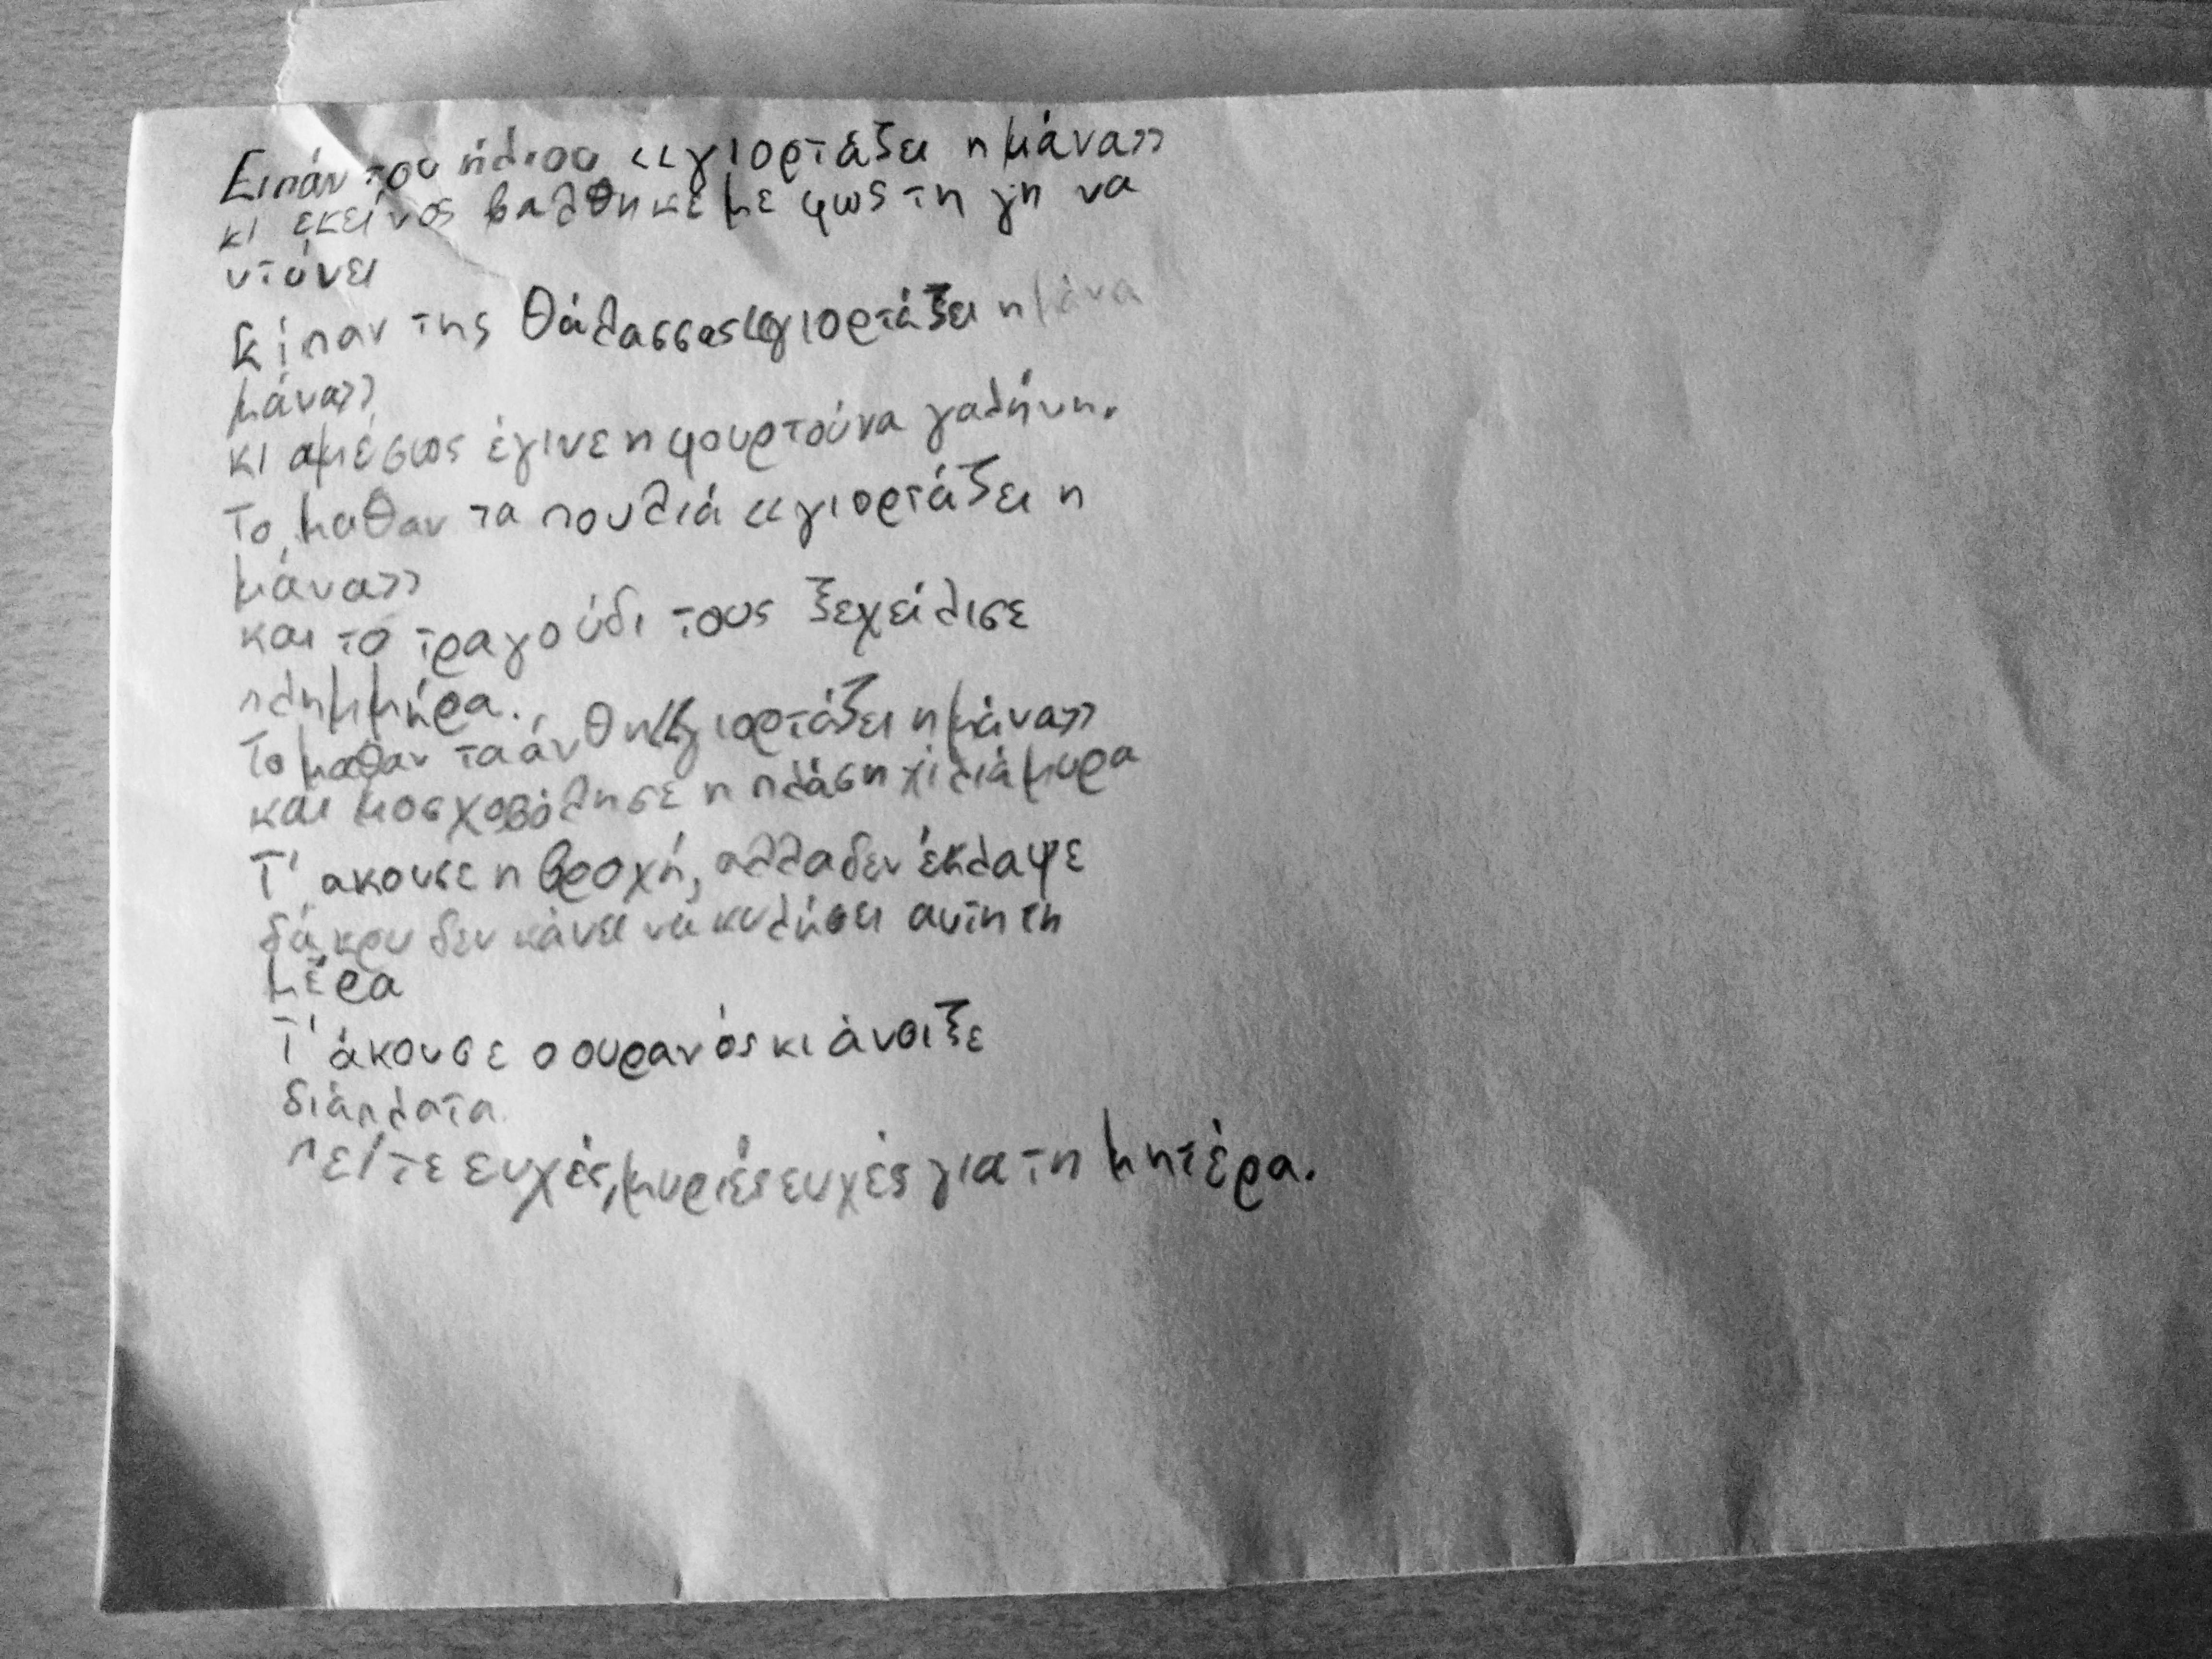 Ειπάν του ήλιου «γιορτάζει η μάνα»
κι εκείνος βαλθηκε με φως τη γη να
ντύνει
Είπαν της θάλασσας «γιορτάζει η μάνα
μάνα»
κι αμέσως έγινε η φουρτούνα γαλήνη.
Το μαθαν τα πουλιά «γιορτάζει η
μάνα»
και το τραγούδι τους ξεχείλισε
πλημμύρα.
Το μαθαν τα άνθη «γιορτάζει η μάνα»
και μοσχοβόλησε η πλάση χίλιά μυρα
Τ' ακουσε η βροχή, αλλα δεν έκλαψε
δάκρυ δεν κάνει να κυλήσει αυτη τη
μέρα
Τ' άκουσε ο ουρανός κι άνοιξε
διάπλατα
πείτε ευχές, μυριές ευχές για τη μητέρα.